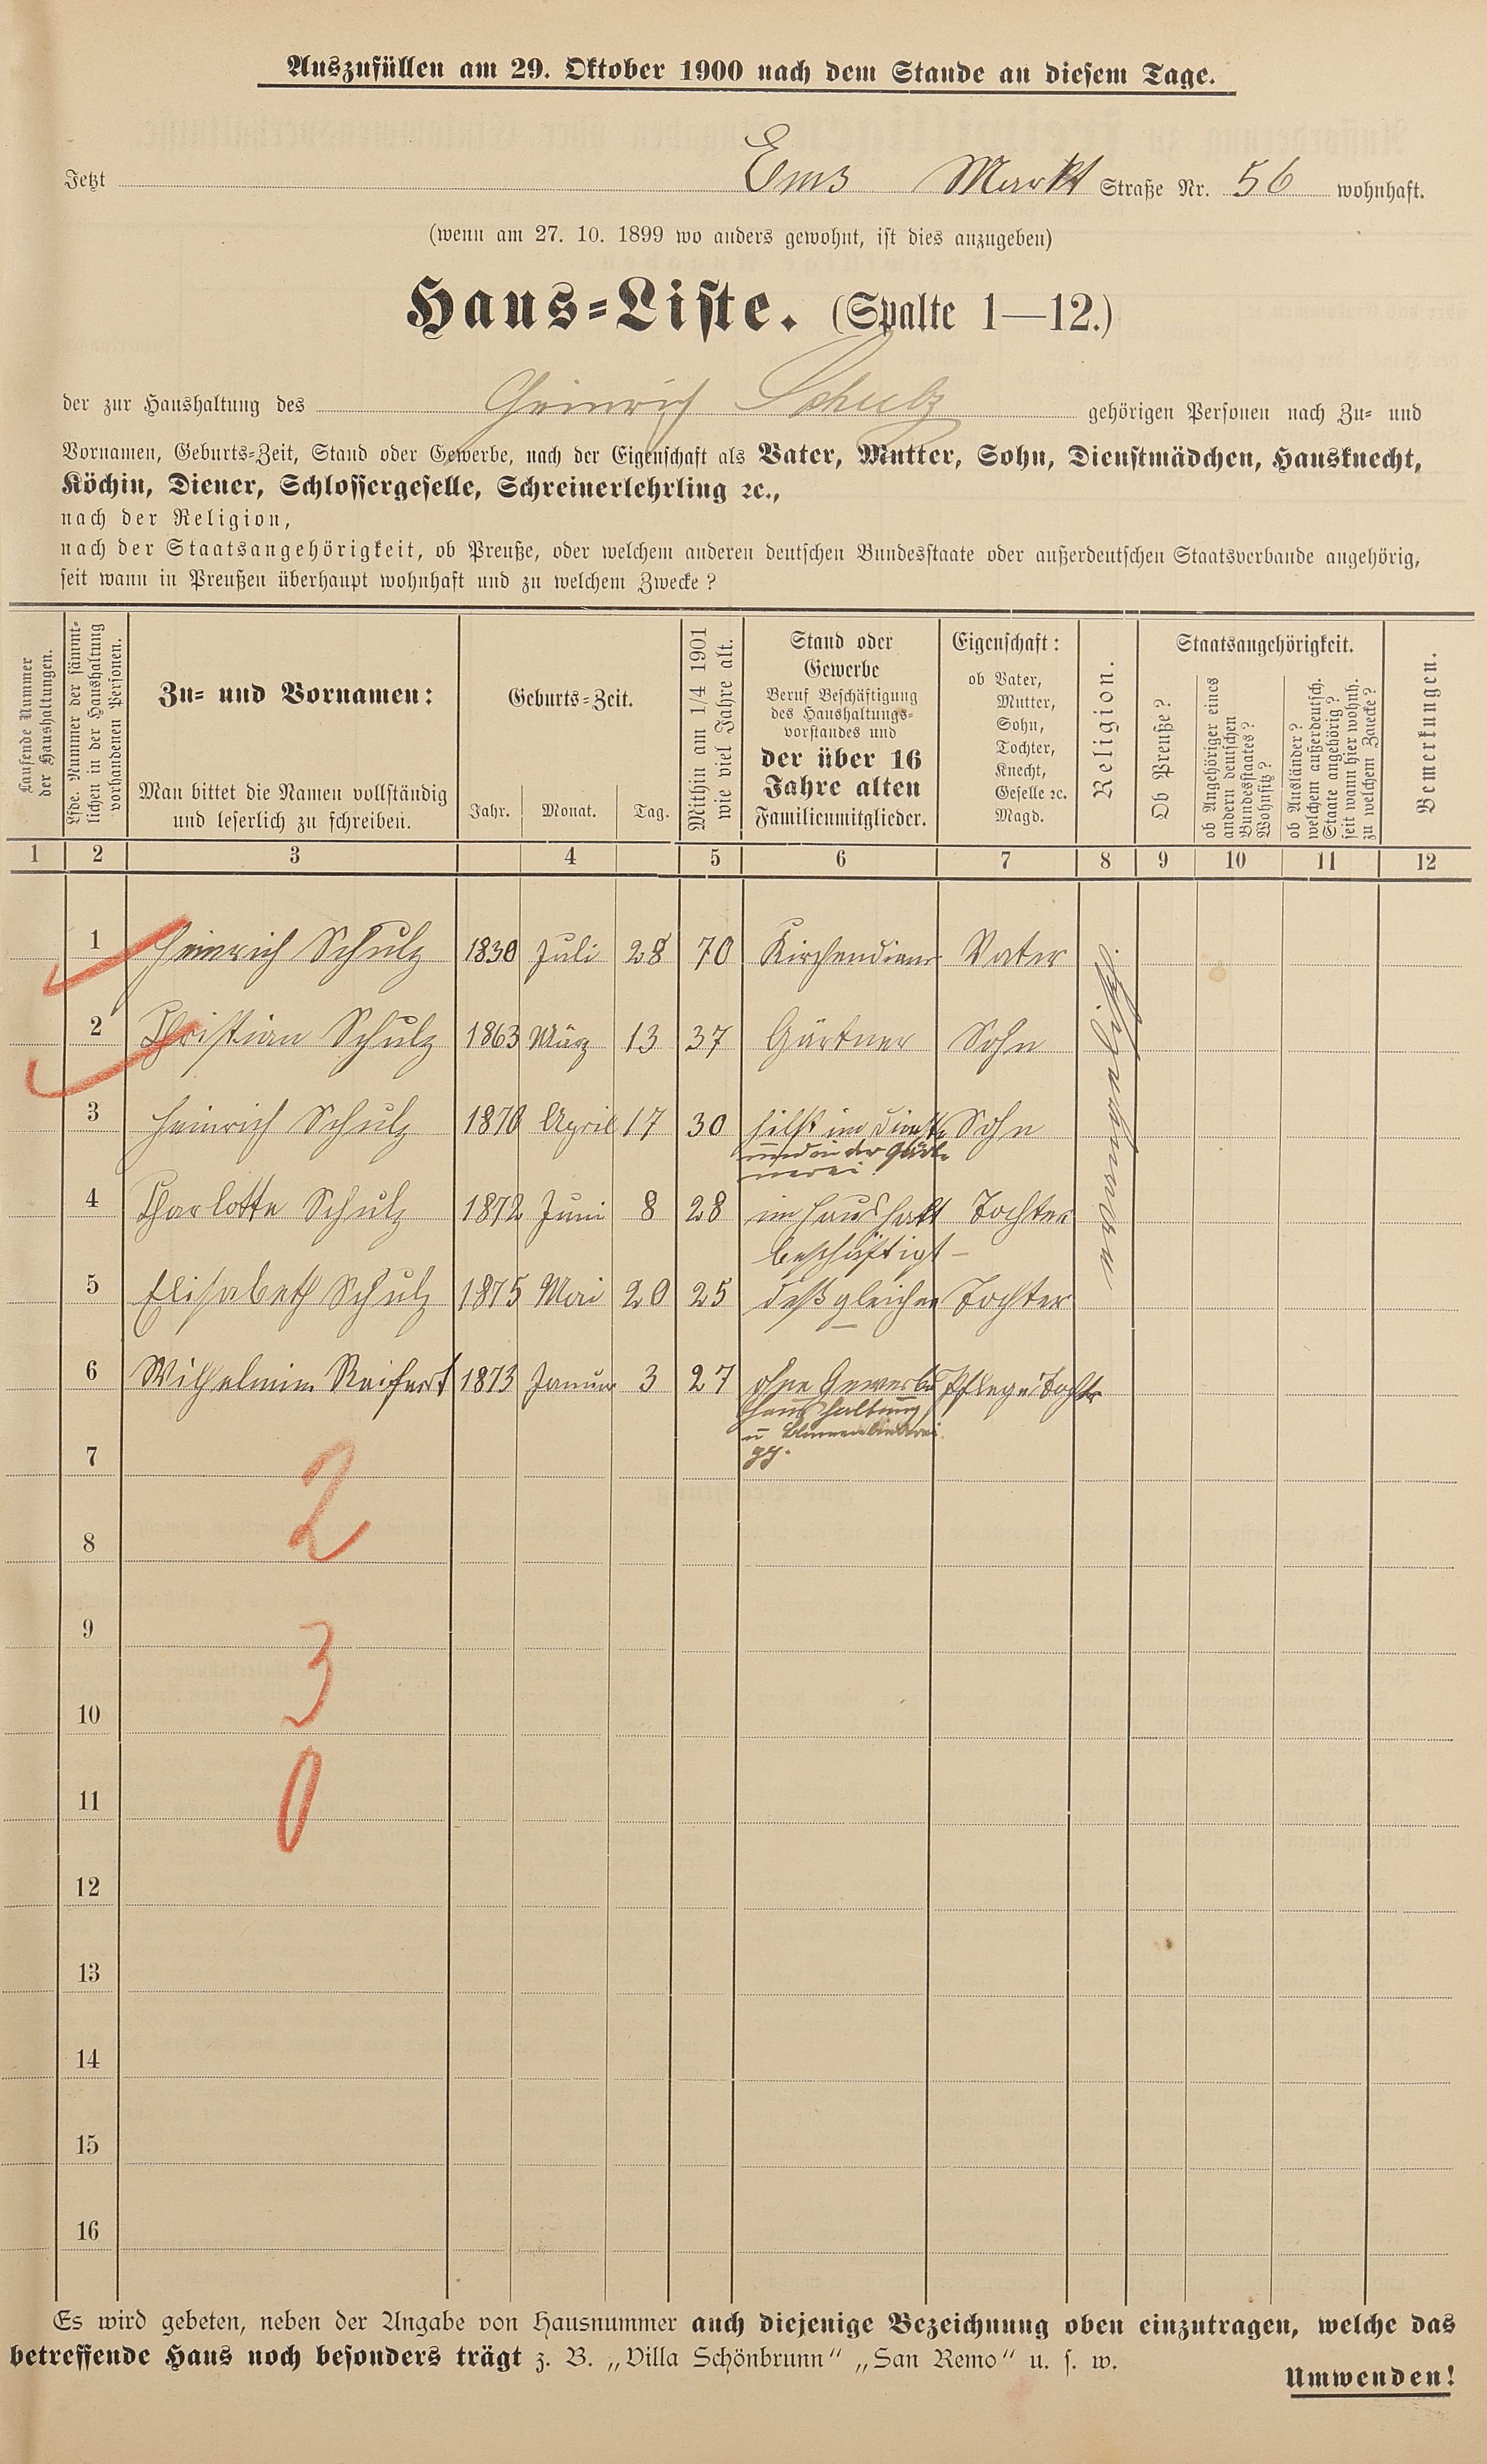 Auszufüllen am 29. Oktober 1900 nach dem Stande an diesem Tage.
Jetzt Ems Markt Straße Nr. 56 wohnhaft.
(wenn am 27. 10. 1899 wo anders gewohnt, ist dies anzugeben)
Haus=Liste. (Spalte 1—12.)
der zur Haushaltung des Heinrich Schulz gehörigen Personen nach Zu= und
Vornamen, Geburts=Zeit, Stand oder Gewerbe, nach der Eigenschaft als Vater, Mutter, Sohn, Dienstmädchen, Hausknecht,
Köchin, Diener, Schlossergeselle, Schreinerlehrling ꝛc.,
nach der Religion,
nach der Staatsangehörigkeit, ob Preuße, oder welchem anderen deutschen Bundesstaate oder außerdeutschen Staatsverbande angehörig,
seit wann in Preußen überhaupt wohnhaft und zu welchem Zwecke?
Laufende Nummer
der Haushaltungen.
Lfde. Nummer der sämmt=
lichen in der Haushaltung
vorhandenen Personen.
Zu= und Vornamen:
Man bittet die Namen vollständig
und leserlich zu schreiben.
Geburts=Zeit.
Jahr. Monat. Tag.
Mithin am 1/4 1901
wie viel Jahre alt.
Stand oder
Gewerbe
Beruf Beschäftigung
des Haushaltungs=
vorstandes und
der über 16
Jahre alten
Familienmitglieder.
Eigenschaft:
ob Vater,
Mutter,
Sohn,
Tochter,
Knecht,
Geselle ꝛc.
Magd.
Religion.
Staatsangehörigkeit.
Ob Preuße?
ob Angehöriger eines
andern deutschen
Bundesstaates?
Wohnsitz?
ob Ausländer?
welchem außerdeutsch.
Staate angehörig?
seit wann hier wohnh.
zu welchem Zwecke?
Bemerkungen.
1 2 3 4 5 6 7 8 9 10 11 12
1 Heinrich Schulz 1830 Juli 28 70 Kirchendiener Vater
2 Christian Schulz 1863 März 13 37 Gärtner Sohn
3 Heinrich Schulz 1870 April 17 30 hilft im Dienste Sohn
und in der Gärt=
nerei
4 Charlotte Schulz 1872 Juni 8 28 im Haushalt Tochter
beschäftigt
5 Elisabeth Schulz 1875 Mai 20 25 deßgleichen Tochter
6 Wilhelmine Reifert 1873 Januar 3 27 ohne Gewerbe Pflege Tochter
Haushaltung
u Blumenbinderei
evangelisch
7
2
8
9
3
10
0
11
12
13
14
15
16
Es wird gebeten, neben der Angabe von Hausnummer auch diejenige Bezeichnung oben einzutragen, welche das
betreffende Haus noch besonders trägt z. B. „Villa Schönbrunn“ „San Remo“ u. s. w.
Umwenden!